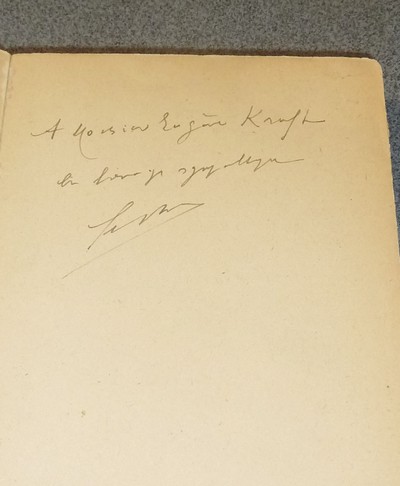 A Monsieur Eugène Kraft
en hommage sympathique